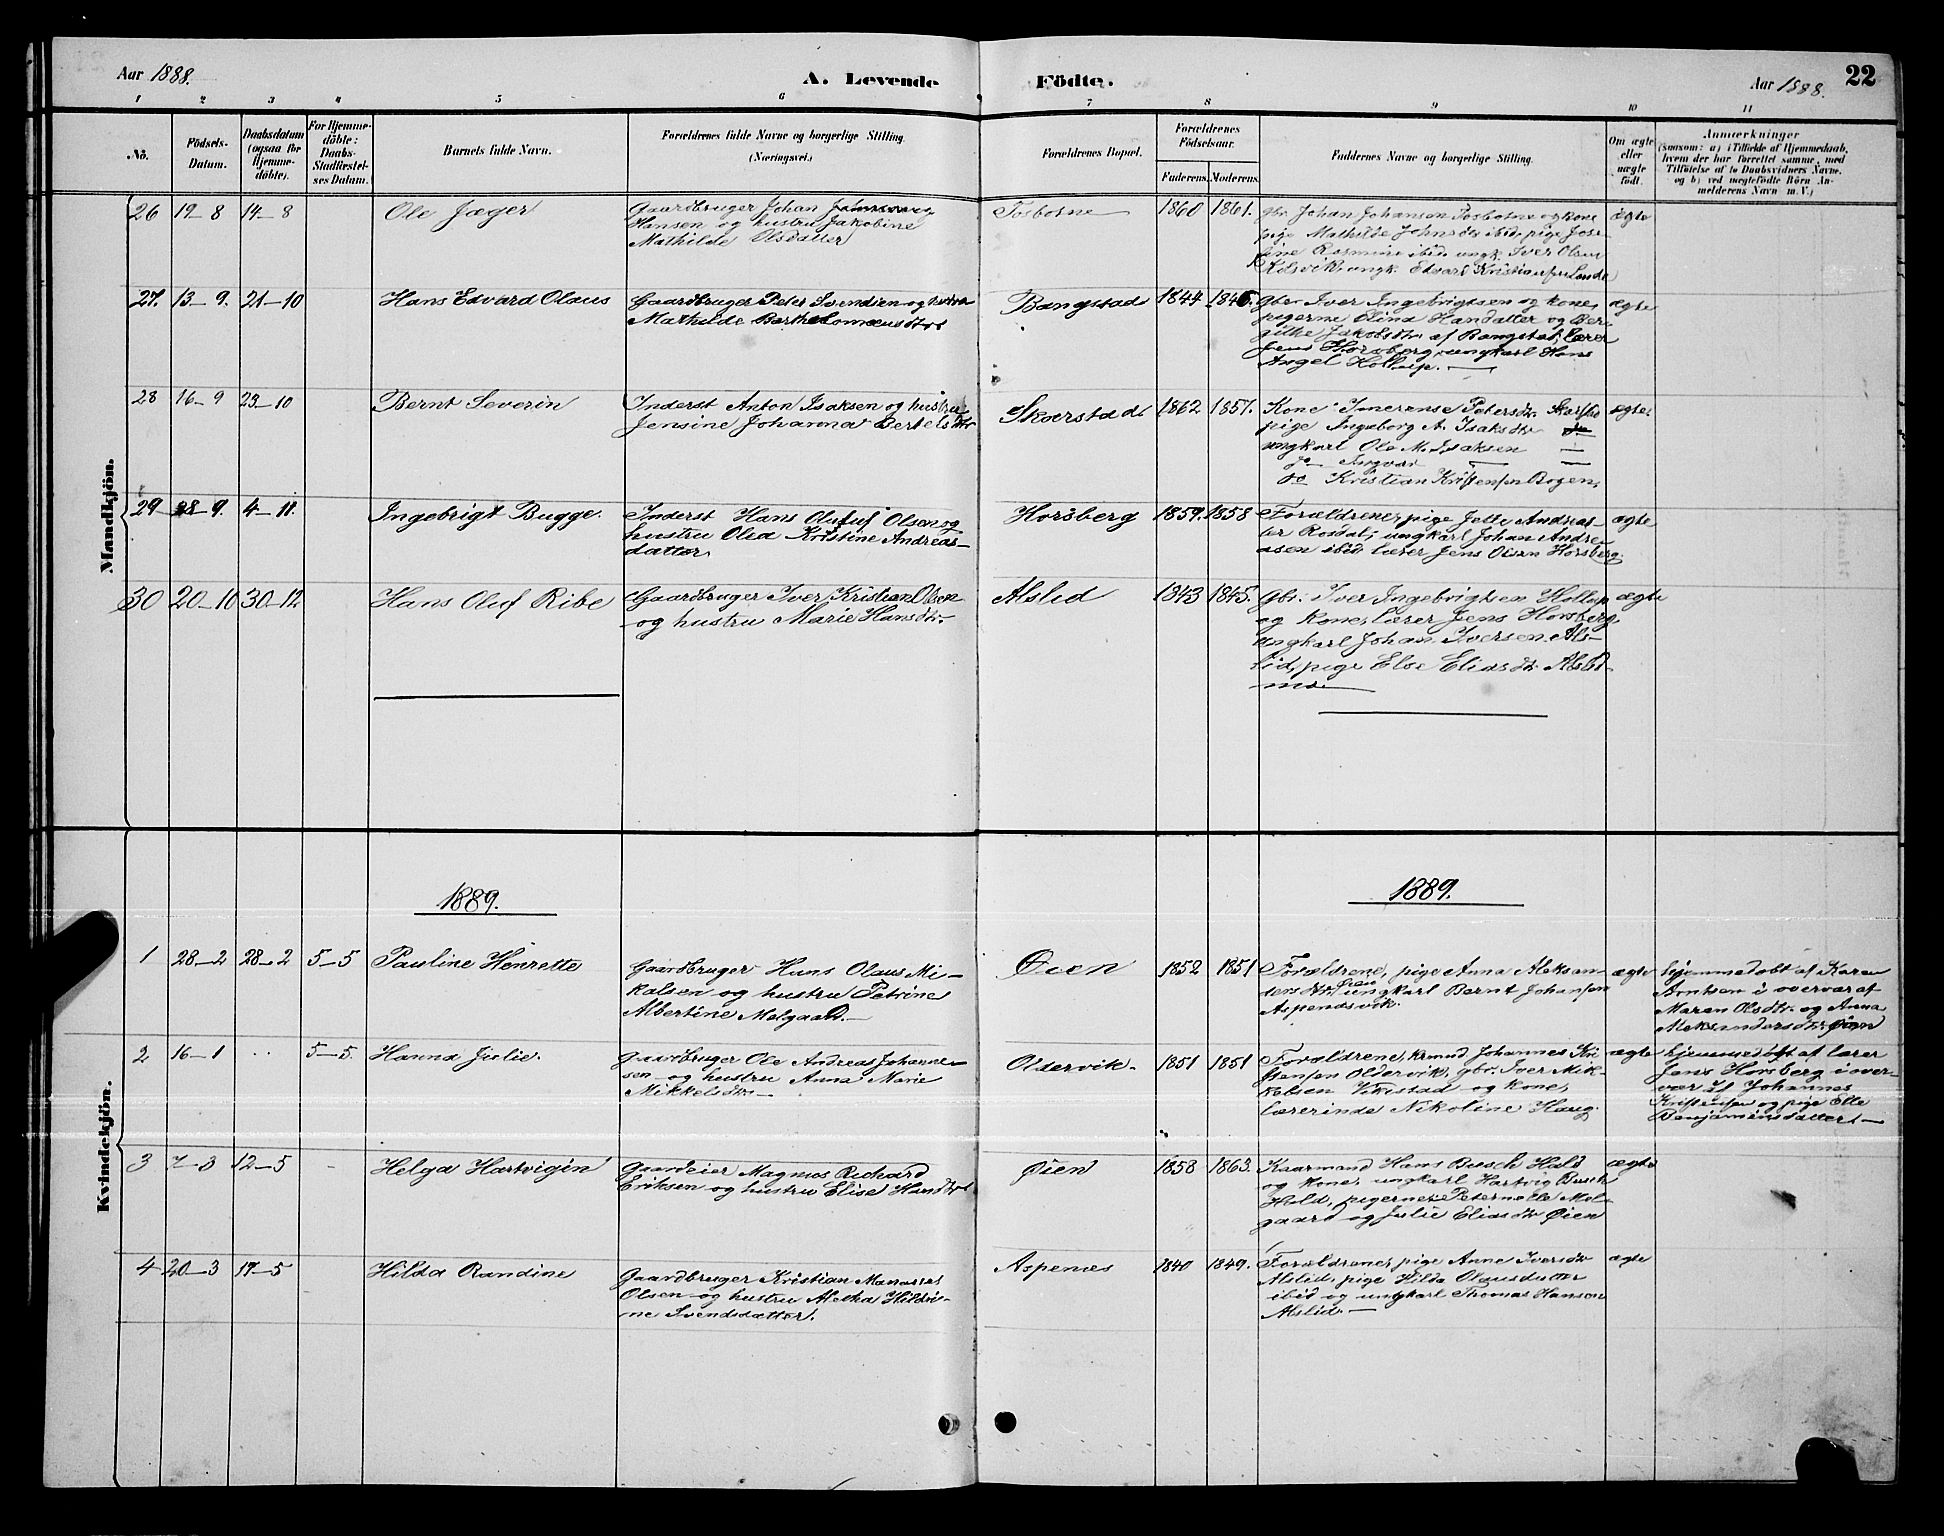 Aar 1888.
A. Levende Födte.
Aar 1888.
22
1 2 3 4 5 6 7 8 9 10 11
No.
Födsels-
Datum.
Daabsdatum
(ogsaa for
Hjemme-
döbte).
For Hjemme-
döbte:
Daabs-
Stadfæstel-
ses Datum.
Barnets fulde Navn.
Forældrenes fulde Navne og borgerlige Stilling.
(Næringsvei.)
Forældrenes Bopæl.
Forældrenes
Födselsaar.
Faderens. Moderens.
Faddernes Navne og borgerlige Stilling.
Om ægte
eller
uægte
födt.
Anmærkninger
(saasom: a) i Tilfælde af Hjemmedaab,
hvem der har forrettet samme, med
Tilföielse af to Daabsvidners Navne,
og b) ved uægtefödte Börn An-
melderens Navn m. V.)
Mandkjön.
26 19-8 14-8 Ole Jæger
Gaardbruger Johan
Hansen og hustru Jakobine
Mathilde Olsdatter
Tosbotne 1860 1861.
gbr. Johan Johansen Tosbotne og kone
pige Mathilde Johnsdtr ibid, pige Jose-
fine Rasmine ibid ungk. Iver Olsen
ungk. Edvard Kristiansen
ægte
27. 13-9. 21-10 Hans Edvard Olaus
Gaardbruger Peter Svendsen og hustru
Mathilde Bartholomæusdtr
Bangstad 1844 1846.
gbr. Iver Ingebrigtsen og kone,
pigerne Elina Hansdatter og Ber-
githe Jakobsdtr. af Bangstad, lærer
Jens Horsberg, ungkarl Hans
Angel Hollup.
ægte
28 16-9 23-10 Bernt Severin
Inderst Anton Isaksen og hustru
Jensine Johanna Bertelsdtr
Skarstad 1862 1857.
Kone Imerense Petersdtr. Skarstad
pige Ingeborg A. Isaksdtr do
ungkarl Ole M. Isaksen —
do Ingvar — —
do Kristian Kristensen Bogen,
ægte
29 28-9. 4-11. Ingebrigt Bugge.
Inderst Hans Oluf Olsen og
hustru Olea Kristine Andreas-
datter.
Horsberg 1859. 1858
Forældrene, pige Jelle Andreas-
dtr Rosdal, ungkarl Johan Andre-
asen ibid lærer Jens Olsen Horsberg.
ægte
30 20-10 30-12 Hans Oluf Ribe
Gaardbruger Iver Kristian Olsen
og hustru Marie Hansdtr.
Alslid 1843 1845.
gbr. Iver Ingebrigtsen Hollup
og Kone, lærer Jens Horsberg,
ungkarl Johan Iversen Als-
lid, pige Else Eliasdtr Alslid-
mo.
ægte
1889.
1889.
Kvindekjön.
1 28-2 28-2 5-5 Pauline Henrette
Gaardbruger Hans Olaus Mi-
kalsen og hustru Petrine
Albertine Melgaard.
Øien 1852 1851
Forældrene, pige Anna Aleksan-
dersdtr Øien ungkarl Bernt Johansen
Aspendsvik.
ægte
hjemmedøbt af Karen
Arntsen i overvær af
Maren Olsdtr. og Anna
Aleksandersdtr. Øien
2 16-1 .. 5-5. Hanna Julie.
Gaardbruger Ole Andreas Johanne-
sen og hustru Anna Marie
Mikkelsdtr.
Oldervik. 1851 1851
Forældrene, krmnd Johannes Kri-
stensen Oldervik, gbr. Iver Mik-
kelsen Vikestad og kone,
lærerinde Nikoline Haug.
ægte
hjemmedøbt af lærer
Jens Horsberg i over-
vær af Johannes
Kristensen og pige Elle
Benjaminsdatter.
3 7-3 12-5 - Helga Hartvigin
Gaardeier Magnus Richard
Eriksen og hustru Elise Hansdtr
Øien 1858 1863.
Kaarmand Hans Busch Hald
og kone, ungkarl Hartvig Busch
Hald, pigerne: Peternelle Mel-
gaard og Julie Eliasdtr Øien
ægte
4 20-3 17-5 Hilda Randine
Gaardbruger Kristian Manasses
Olsen og hustru Aletha Hildri-
ne Svendsdatter.
Aspenæs 1840 1849.
Forældrene, pige Anne Iversdtr
Alslid, pige Hilda Olausdatter
ibid og ungkarl Thomas Hansen
Alslid.
ægte